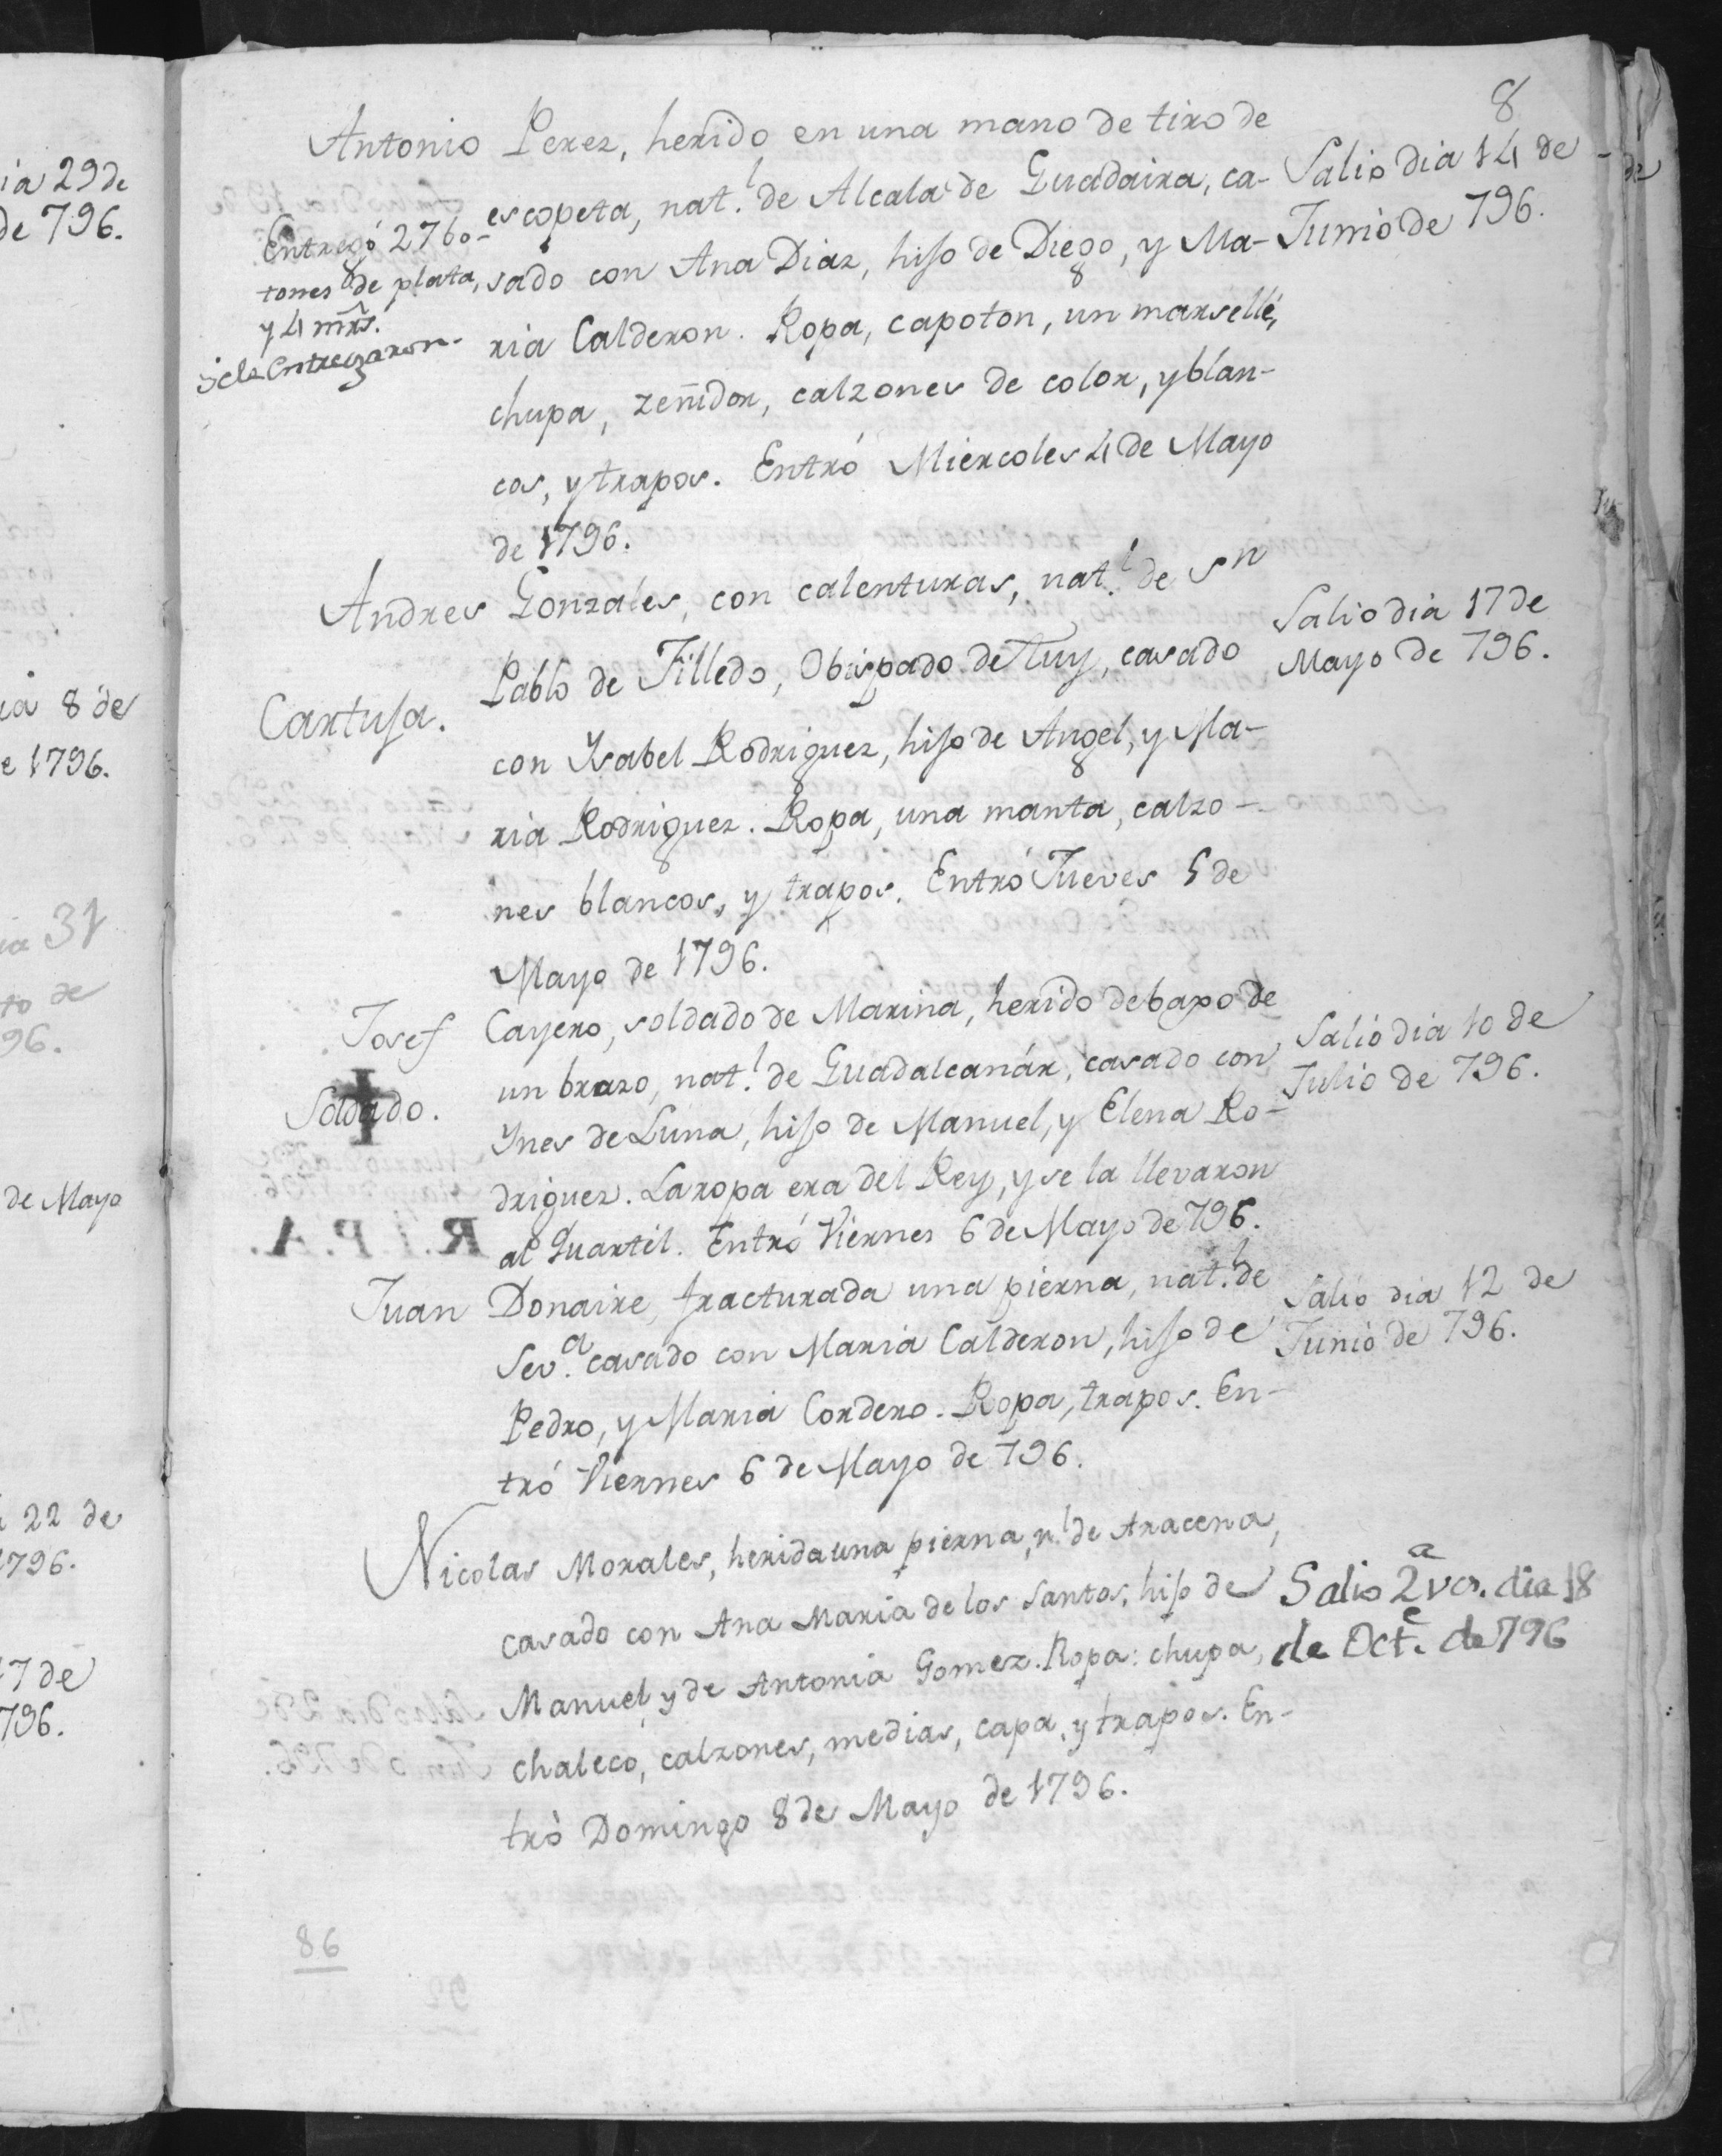 8
Antonio Perez, herido en una mano de tiro de
escopeta, nat.l de Alcala de Guadaira, ca-
sado con Ana Diaz, hijo de Diego, y Ma-
ria Calderon. Ropa, capoton, un marsellé,
chupa, zeñidor, calzones de color, y blan-
cos, y trapos. Entró Miercoles 4 de Mayo
de 1796.
Entregó 27 bo-
tones de plata,
y 4 mrs.
se le Entregaron.
Salio dia 14 de
Junio de 796.
Andres Gonzales, con calenturas, nat.l de Sn
Pablo de Filledo, Obispado de Tuy, casado
con Ysabel Rodriguez, hijo de Angel, y Ma-
ria Rodriguez. Ropa, una manta, calzo-
nes blancos, y trapos. Entró Jueves 5 de
Mayo de 1796.
Cartuja.
Salio dia 17 de
Mayo de 796.
Josef Cayero, soldado de Marina, herido debaxo de
un brazo, nat.l de Guadalcanár, casado con
Ynes de Luna, hijo de Manuel, y Elena Ro-
driguez. La ropa era del Rey, y se la llevaron
al Quartél. Entró Viernes 6 de Mayo de 796.
Soldado.
Salió dia 10 de
Julio de 796.
Juan Donaire, fracturada una pierna, nat.l de
Sev.a casado con Maria Calderon, hijo de
Pedro, y Maria Cordero. Ropa, trapos. En-
tró Viernes 6 de Mayo de 796.
Salió dia 12 de
Junio de 796.
Nicolas Morales, herida una pierna, n.l de Aracena,
casado con Ana Maria de los Santos, hijo de
Manuel, y de Antonia Gomez. Ropa: chupa,
chaleco, calzones, medias, capa, y trapos. En-
tró Domingo 8 de Mayo de 1796.
Salio 2a ves. dia 18
de Oct.e de 796
86
ia 29 de
de 796.
ia 8 de
e 1796.
ia 31
to de
96.
de Mayo
22 de
1796.
17 de
796.
de